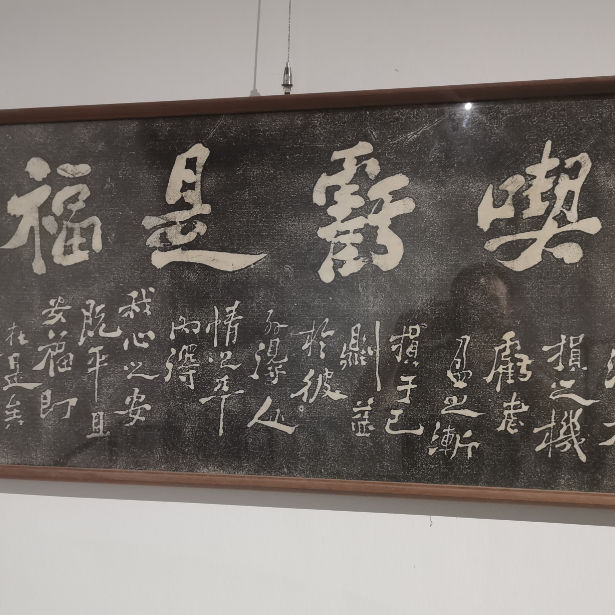 喫虧是福
損之機
虧者
盈之漸
損于己
則益
於彼
外得人
情之平
內得
我心之安
既平且
安福即
在是矣